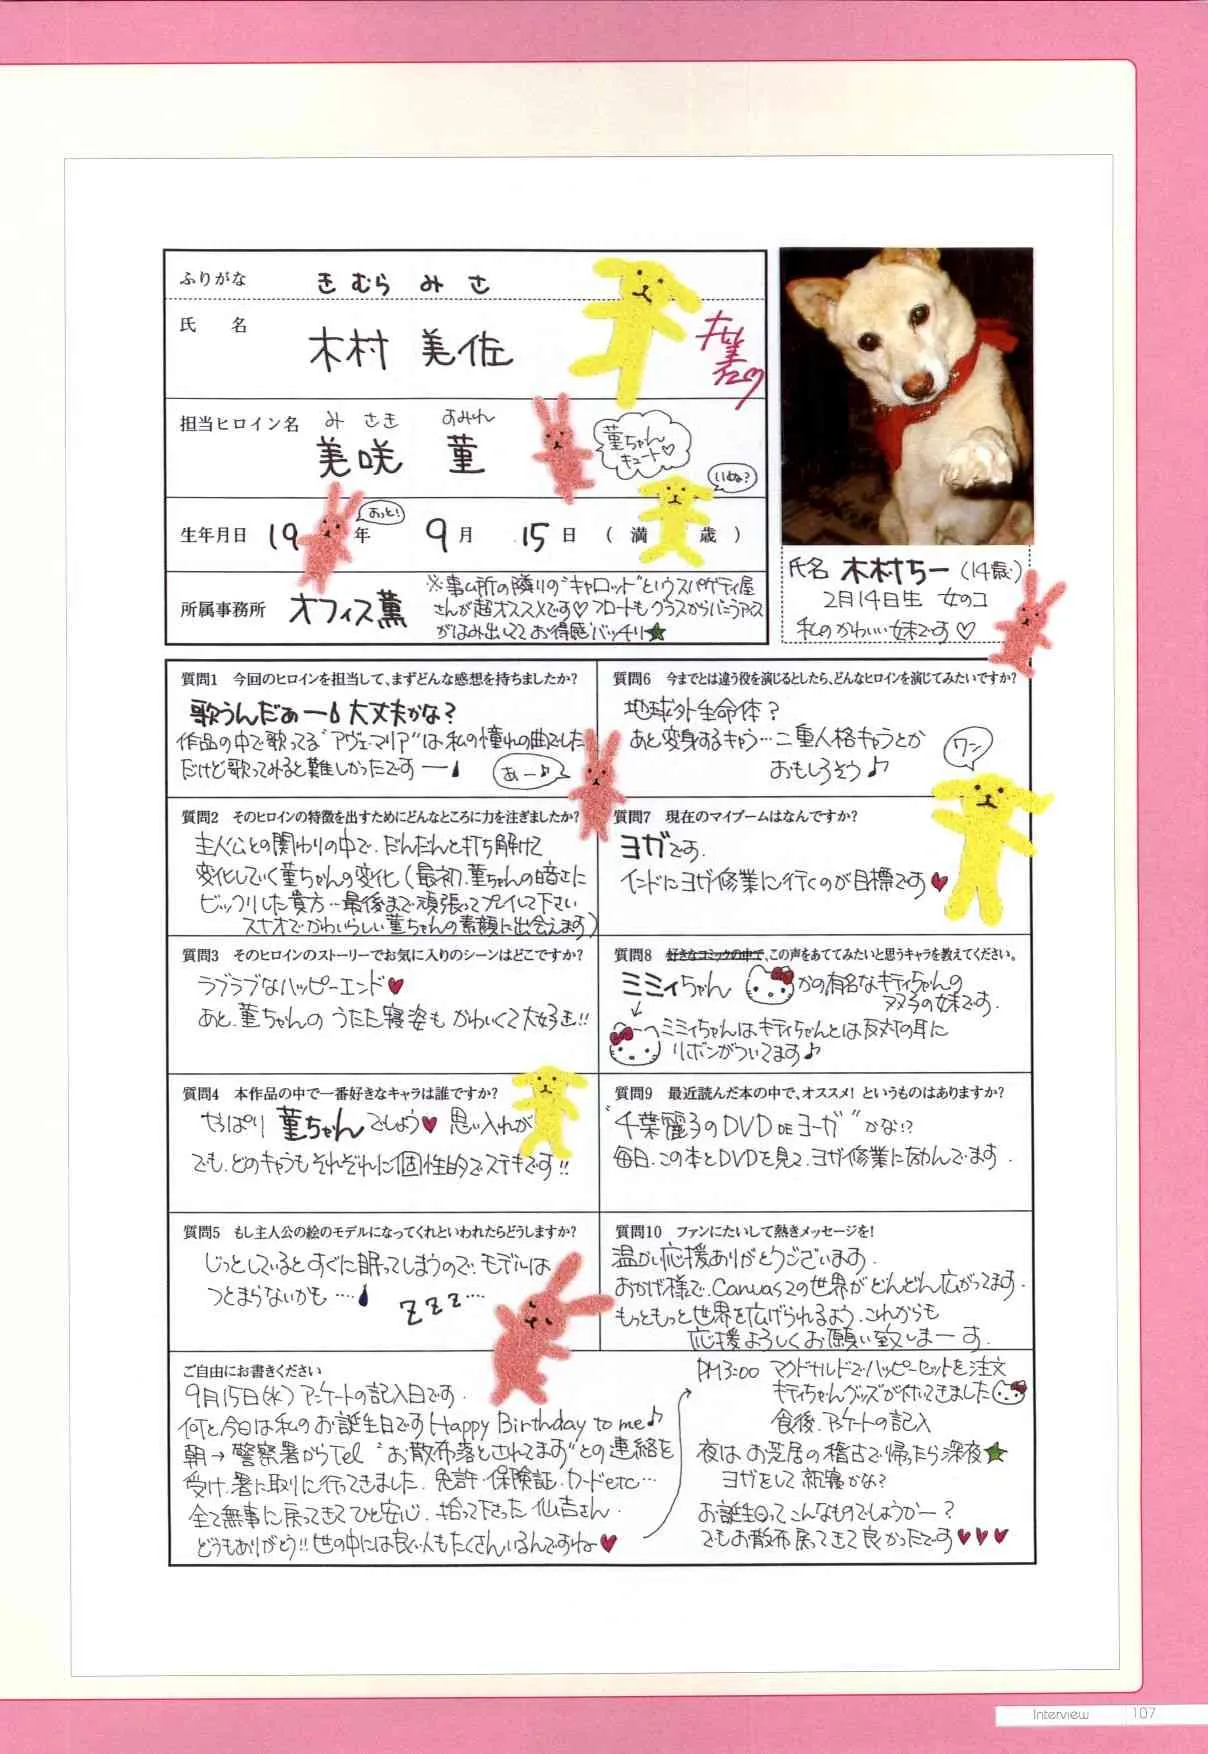 ふりがな きむら みさ
氏 名 木村 美佐
担当ヒロイン名 みさき すみれ
美咲 菫
菫ちゃん
キュート♡
いぬな?
おっと!
生年月日 19 年 9月 15日 (満 歳)
所属事務所 オフィス薫
※事ム所の隣りの"キャロット"というスパゲティ屋
さんが超オススメです♡フロートもグラスからバニラアイス
がはみ出してて お得感バッチリ★
氏名 木村ちー (14歳)
2月14日生 女のコ
私のかわいい妹です♡
質問1 今回のヒロインを担当して、まずどんな感想を持ちましたか?
歌うんだぁー 大丈夫かな?
作品の中で歌ってる"アヴェマリア"は私の憧れの曲でした
だけど歌ってみると難しかったですー
あー♪
質問2 そのヒロインの特徴を出すためにどんなところに力を注ぎましたか?
主人公との関わりの中で、だんだんと打ち解けて
変化していく菫ちゃんの変化(最初、菫ちゃんの暗さに
ビックリした貴方…最後まで頑張ってプレイして下さい
スナオでかわいらしい菫ちゃんの素顔に出会えます)
質問3 そのヒロインのストーリーでお気に入りのシーンはどこですか?
ラブラブなハッピーエンド♥
あと、菫ちゃんの うたた寝姿も かわいくて大好き!!
質問4 本作品の中で一番好きなキャラは誰ですか?
やっぱり 菫ちゃんでしょう♥ 思い入れが
でも、どのキャラもそれぞれに個性的でステキです!!
質問5 もし主人公の絵のモデルになってくれといわれたらどうしますか?
じっとしているとすぐに眠ってしまうので、モデルは
つとまらないかも ……
ZZZ…
質問6 今までとは違う役を演じるとしたら、どんなヒロインを演じてみたいですか?
地球外生命体?
あと変身するキャラ…二重人格キャラとか
おもしろそう♪
ワン
質問7 現在のマイブームはなんですか?
ヨガです.
インドにヨガ修業に行くのが目標です♥
質問8 好きなコミックの中で、この声をあててみたいと思うキャラを教えてください。
ミミィちゃん かの有名なキティちゃんの
フタゴの妹です.
ミミィちゃんはキティちゃんとは反対の耳に
リボンがついてます♪
質問9 最近読んだ本の中で、オススメ! というものはありますか?
"千葉麗子のDVD DE ヨーガ" かな!?
毎日、この本とDVDを見て、ヨガ修業にはげんでます.
質問10 ファンにたいして熱きメッセージを!
温かい応援ありがとうございます.
おかげ様で、Canvas2の世界がどんどん広がってます.
もっともっと世界を広げられるよう、これからも
応援よろしくお願い致しまーす.
ご自由にお書きください
9月15日(水) アンケートの記入日です.
何と、今日は私のお誕生日です Happy Birthday to me♪
朝→警察署からTel "お散布落とされてます"との連絡を
受け、署に取りに行ってきました. 免許・保険証・カードetc…
全て無事に戻ってきてひと安心. 拾って下さった 仏吉さん.
どうもありがとう!! 世の中には良い人もたくさんいるんですね♥
PM3:00 マクドナルドでハッピーセットを注文
キティちゃんグッズが付いてきました
食後、アンケートの記入
夜は お芝居の稽古で帰ったら深夜★
ヨガをして就寝かな?
お誕生日ってこんなものでしょうかー?
でもお散布戻ってきて良かったです♥♥♥
Interview 107